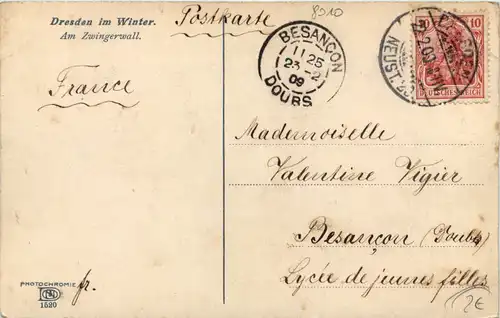 Dresden im Winter.
Am Zwingerwall.
Postkarte
8010
France
BESANÇON
11 25
23 -2
09
DOUBS
NEUST.
22.2.09
10 10
DEUTSCHES REICH
Mademoiselle
Valentine Vigier
Besançon (Doubs)
Lycée de jeunes filles
PHOTOCHROMIE
1520
fr.
2€